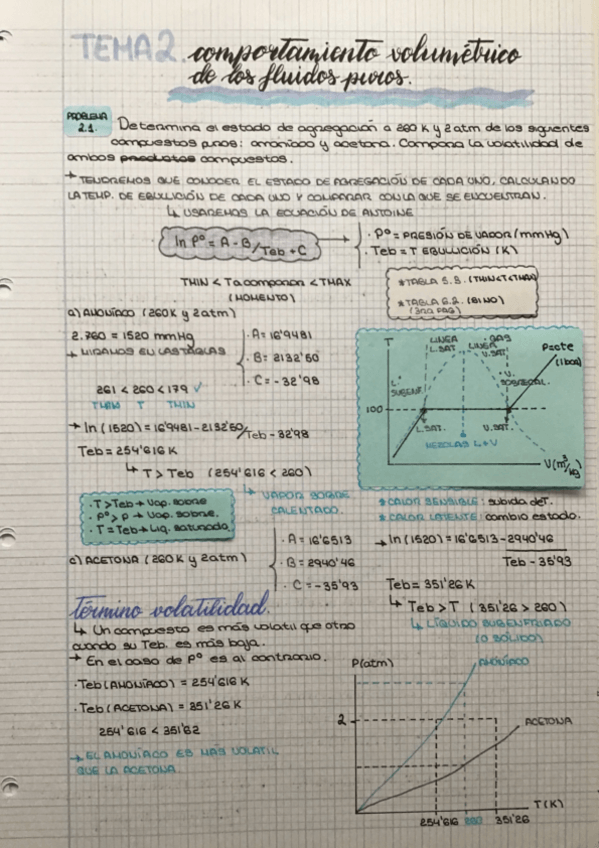 TEMA 2. comportamiento volumétrico
de los fluidos puros.
PROBLEMA
2.1.
Determina el estado de agregación a 260 K y 2 atm de los siguientes
compuestos puros: amoníaco y acetona. Compara la volatilidad de
ambos productos compuestos.
→ TENDREMOS QUE CONOCER EL ESTADO DE AGREGACIÓN DE CADA UNO, CALCULANDO
LA TEMP. DE EBULLICIÓN DE CADA UNO Y COMPARAR CON LA QUE SE ENCUENTRAN.
↳ USAREMOS LA ECUACIÓN DE ANTOINE
ln Pº = A - B/Teb + C
· Pº = PRESIÓN DE VAPOR (mmHg)
· Teb = T EBULLICIÓN (K)
TMIN < Ta comparar < TMAX
(MOMENTO)
*TABLA (TMIN<T<TMAX)
*TABLA (SI NO)
a) AMONÍACO (260K y 2atm)
2.760 = 1520 mmHg
→ MIRAMOS EN LAS TABLAS
261 < 260 < 179 ✓
TMIN
· A = 16'9481
· B = 2132'50
· C = -32'98
→ ln (1520) = 16'9481 - 2132'50/Teb - 32'98
Teb = 254'616 K
↳ T > Teb (254'616 < 260)
↳ VAPOR SOBRE
CALENTADO.
T
LINEA
L. SAT
LINEA
V. SAT.
GAS
Pcte
(1 bar)
L.
SUBENF.
V.
SOBRECAL.
100
L. SAT.
V. SAT.
MEZCLAS L+V
V(m³/kg)
· T > Teb → Vap. sobre
· Pº > P → Vap. sobre.
· T = Teb → Liq. saturado
* CALOR SENSIBLE: subida de T.
* CALOR LATENTE: cambio estado.
c) ACETONA (260K y 2atm)
· A = 16'6513
· B = 2940'46
· C = -35'93
→ ln (1520) = 16'6513 - 2940'46
Teb - 35'93
Teb = 351'26 K
↳ Teb > T (351'26 > 260)
↳ LÍQUIDO SUBENFRIADO
(O SÓLIDO)
término volatilidad.
↳ Un compuesto es más volatil que otro
cuando su Teb. es más baja.
→ En el caso de Pº es al contrario.
· Teb (AMONÍACO) = 254'616 K
· Teb (ACETONA) = 351'26 K
254'616 < 351'62
→ EL AMONÍACO ES MÁS VOLATIL
QUE LA ACETONA
P(atm)
AMONÍACO
2
ACETONA
T(K)
254'616 260 351'26